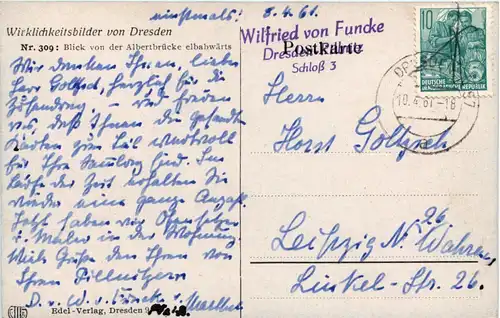 Wirklichkeitsbilder von Dresden
Nr. 309: Blick von der Albertbrücke elbabwärts
einstmals! 8.4.61.
Wir danken Ihnen, lieber
Herr Goltzsch, herzlich für die
Zusendung, und freuen
uns, daß Ihnen die gesandten
Karten zum Teil wertvoll
für Ihre Sammlung sind. Im
Laufe der Zeit erhalten Sie
wieder eine ganze Anzahl.
Jetzt haben wir Ofensetzer
u. Maler in der Wohnung.
Viele Grüße den Ihren von
Ihren Pillnitzern
D. u. W. v. Funcke u.
Edel-Verlag, Dresden
Wilfried von Funcke
Postkarte
Dresden-Pillnitz
Schloß 3
10
DEUTSCHE
DEMOKRATISCHE REPUBLIK
DRESDEN
10.4.61-18
Herrn
Horst Goltzsch
Leipzig N 26
Wahren
Linkel-Str. 26.